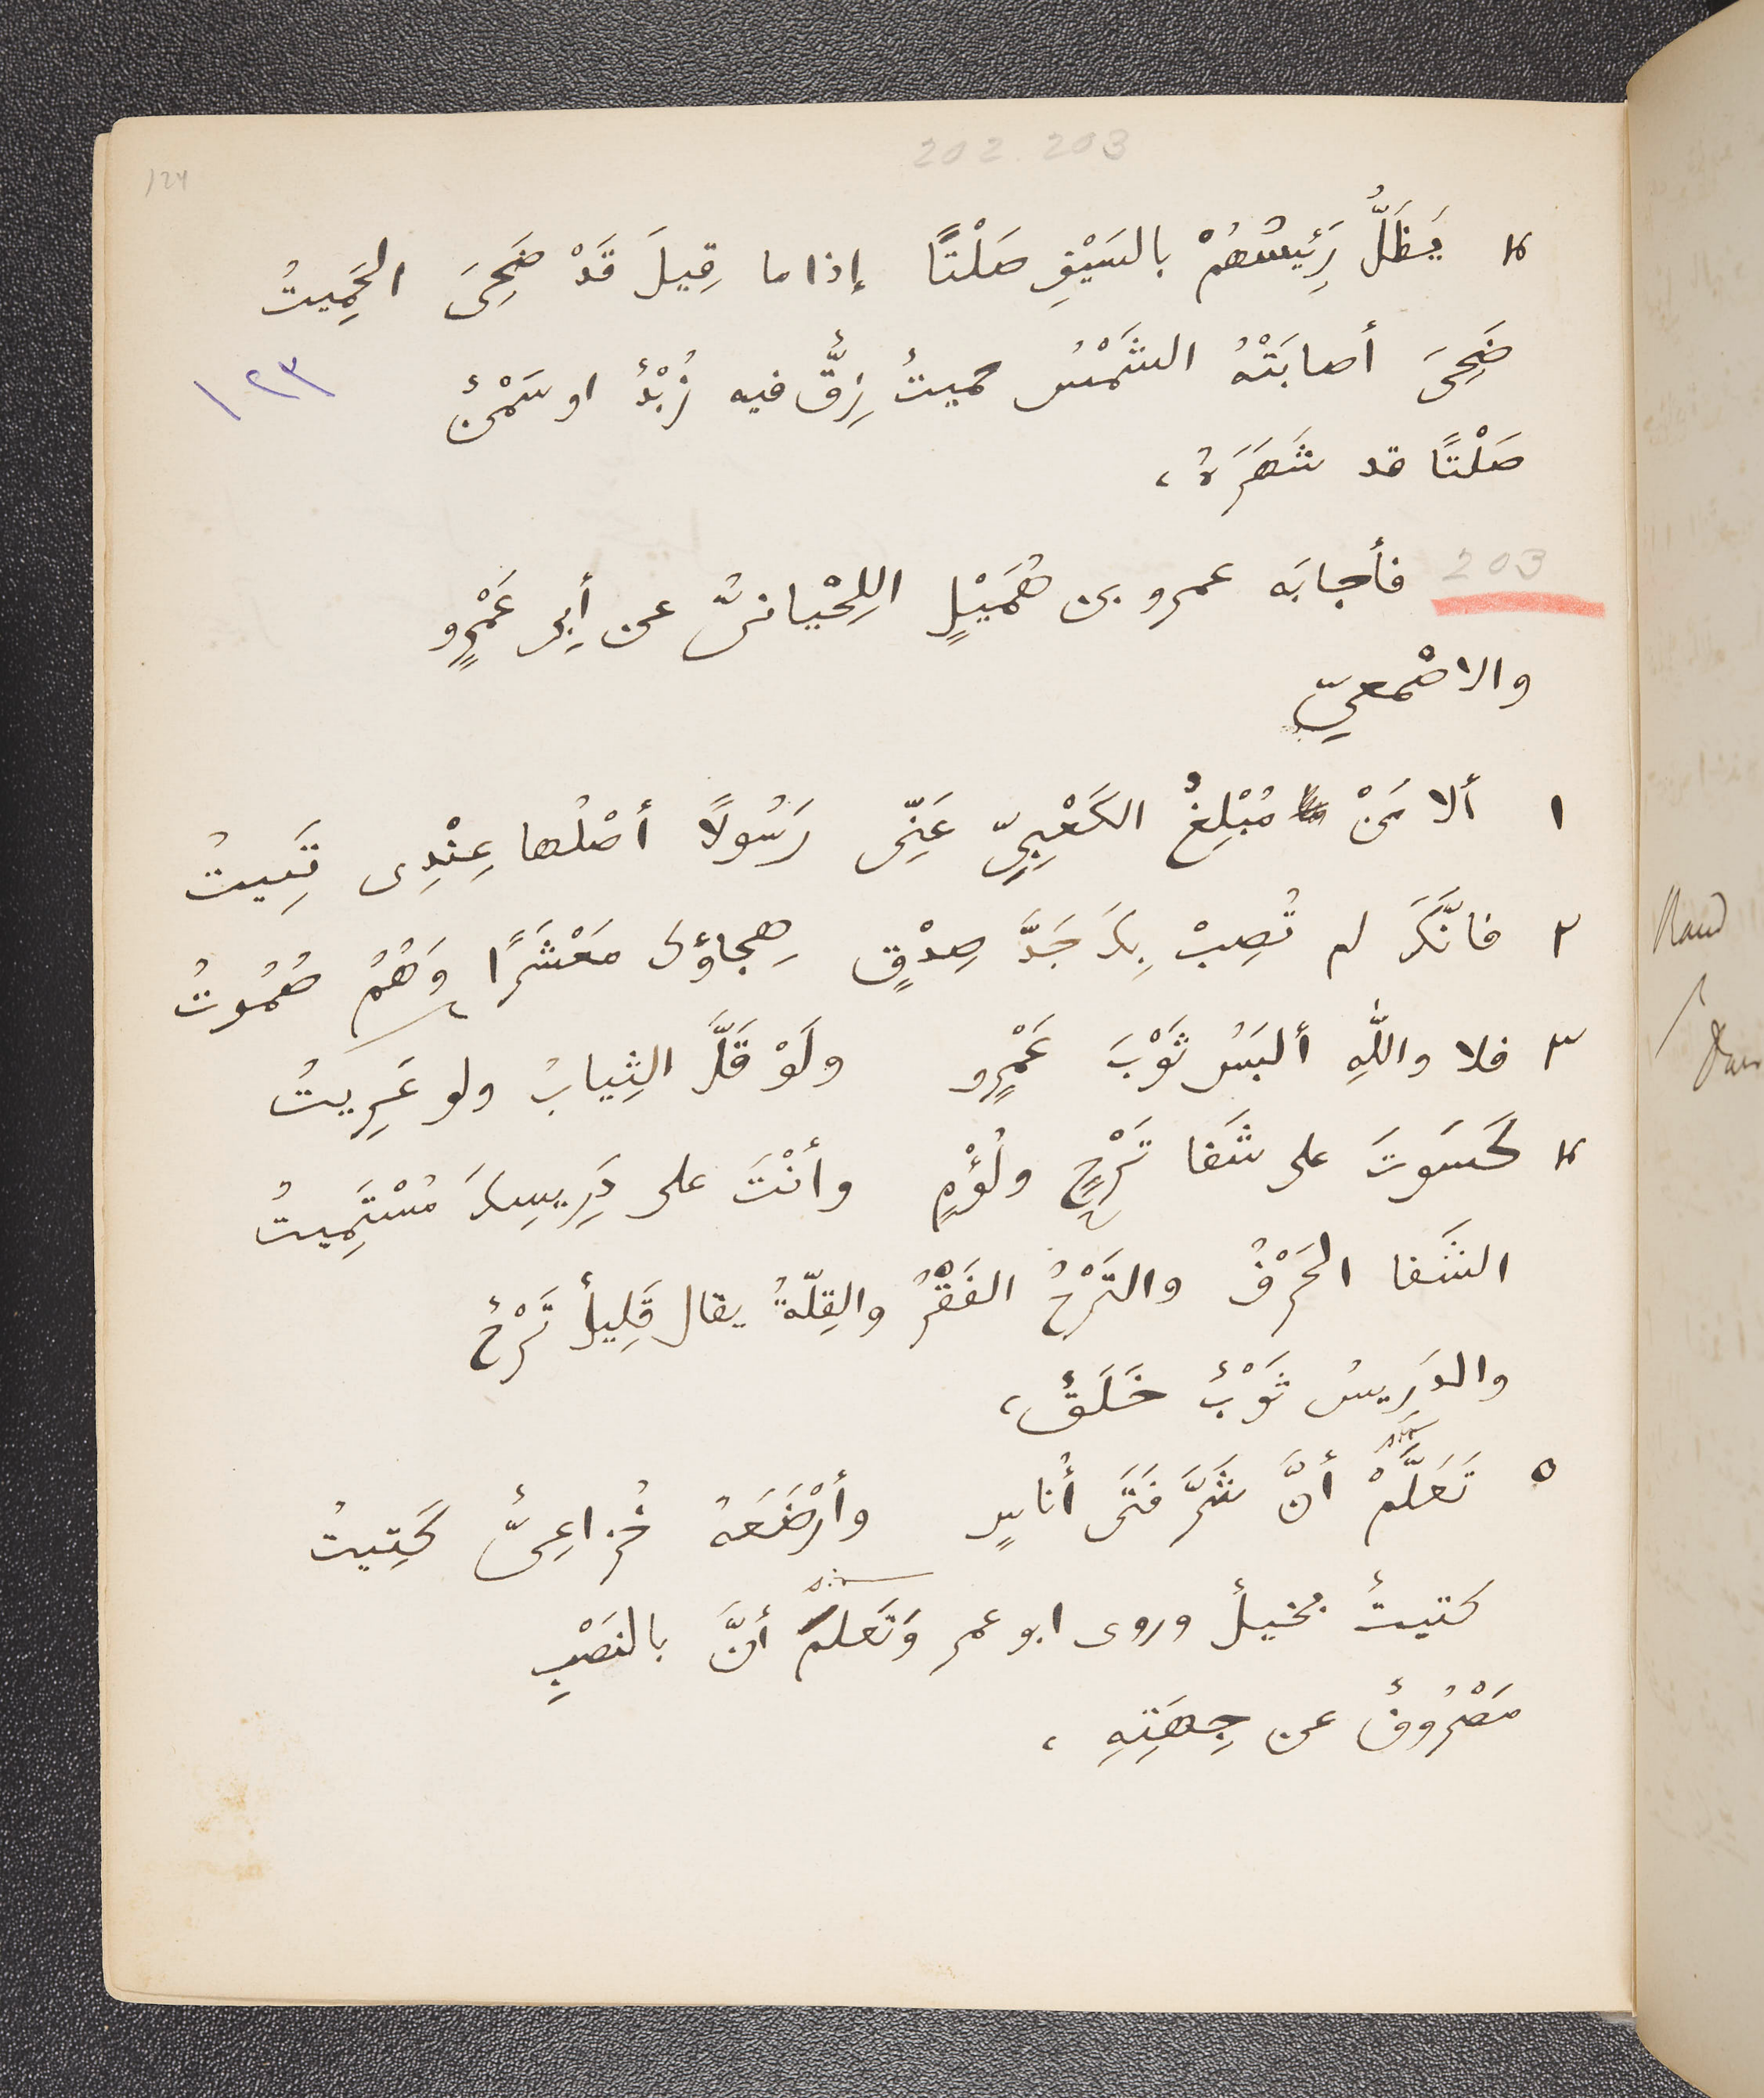 202. 203
124
٤ يَظَلُّ رَئِيسُهُمْ بالسَيْفِ صَلْتًا إذا ما قِيلَ قَدْ ضَحِىَ الحَمِيتُ
ضَحِىَ أصابَتْهُ الشَمْسُ حميتٌ زِقٌّ فيه زُبْدٌ او سَمْنٌ
١٢٣
صَلْتًا قد شَهَرَهُ،
203 فأجابَه عمرو بن هُمَيْلٍ اللِحْيانىُّ عن أبِى عَمْرٍو
والاصْمعيِّ
١ ألا مَنْ مُبْلِغُ الكَعْبِيِّ عَنِّى رَسُولًا أصْلُها عِنْدِى ثَبِيتُ
٢ فانَّكَ لم تُصِبْ بِكَ جَدَّ صِدْقٍ هِجاؤكَ مَعْشَرًا وَهُمُ صُمُوتُ
٣ فلا واللّٰهِ ألبَسُ ثَوْبَ عَمْرٍو ولَوْ قَلَّ الثِيابُ ولو عَرِيتُ
٤ كَسَوتَ على شَفا تَرْحٍ ولُؤْمٍ وأنْتَ على دَرِيسِكَ مُسْتَمِيتُ
الشَفا الحَرْفُ والتَرْحُ الفَقْرُ والقِلّةُ يقال قَلِيلٌ تَرْحٌ
والدَرِيسُ ثَوْبٌ خَلَقٌ،
٥ تَعَلَّمْ أنَّ شَرَّ فَتَى أُناسٍ وأرْضَعَهُ خُزاعِىٌّ كَتِيتُ
كتيتٌ بخيلٌ وروى ابو عمر وَتَعَلم أنَّ بالنَصْبِ
مَصْرُوفٌ عن جِهَتِهِ،